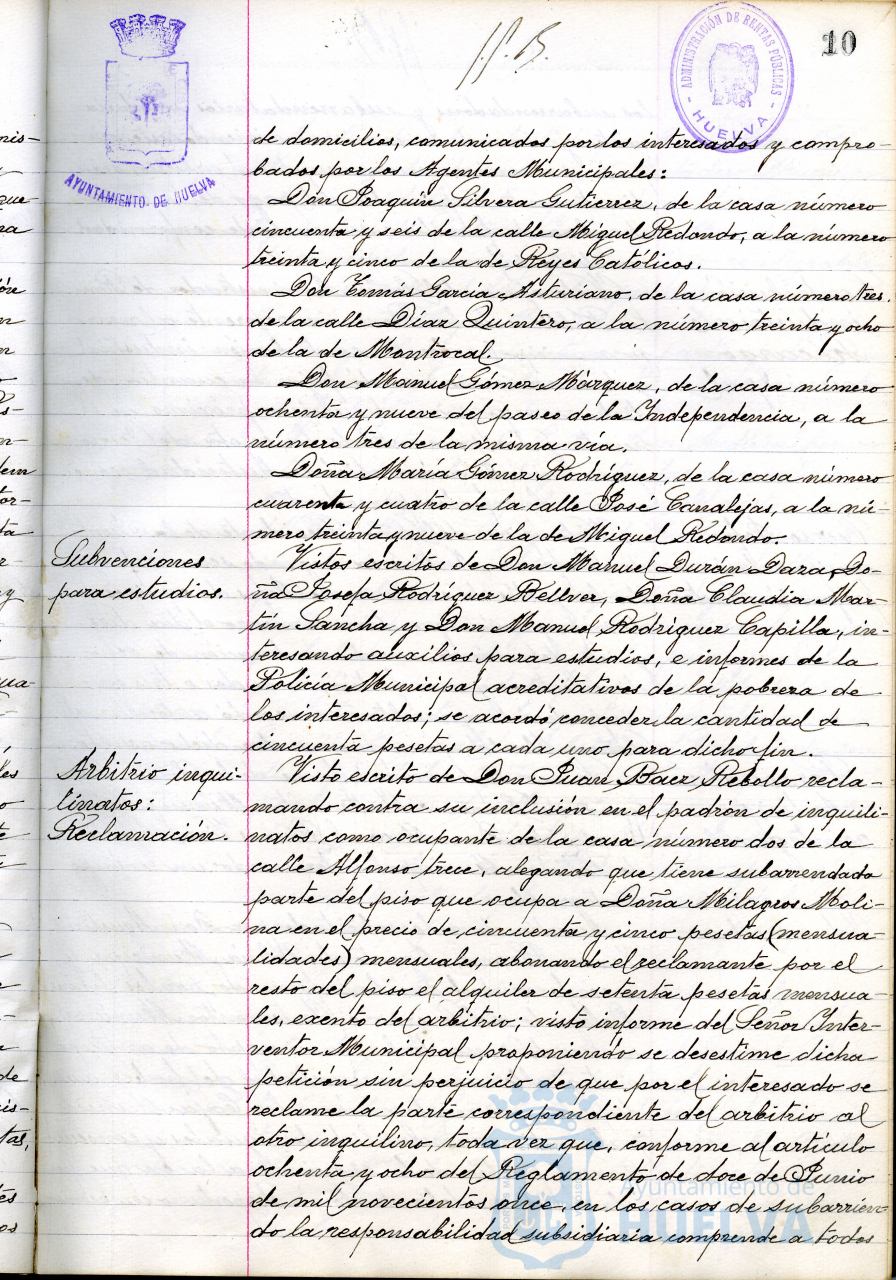 10
AYUNTAMIENTO DE HUELVA
ADMINISTRACIÓN DE RENTAS PÚBLICAS
HUELVA
de domicilios, comunicados por los interesados y compro-
bados por los Agentes Municipales:
Don Joaquín Silvera Gutierrez, de la casa número
cincuenta y seis de la calle Miguel Redondo, a la número
treinta y cinco de la de Reyes Católicos.
Don Tomás García Asturiano, de la casa número tres
de la calle Díaz Quintero, a la número treinta y ocho
de la de Montrocal.
Don Manuel Gómez Márquez, de la casa número
ochenta y nueve del paseo de la Independencia, a la
número tres de la misma vía.
Doña María Gómez Rodríguez, de la casa número
cuarenta y cuatro de la calle José Canalejas, a la nú-
mero treinta y nueve de la de Miguel Redondo.
Subvenciones
para estudios.
Vistos escritos de Don Manuel Durán Daza, Do-
ña Josefa Rodríguez Bellver, Doña Claudia Mar-
tín Sancha y Don Manuel Rodríguez Capilla, in-
teresando auxilios para estudios, e informes de la
Policía Municipal acreditativos de la pobreza de
los interesados; se acordó conceder la cantidad de
cincuenta pesetas a cada uno para dicho fin.
Arbitrio inqui-
linatos:
Reclamación.
Visto escrito de Don Juan Baez Rebollo recla-
mando contra su inclusión en el padrón de inquili-
natos como ocupante de la casa número dos de la
calle Alfonso trece, alegando que tiene subarrendado
parte del piso que ocupa a Doña Milagros Moli-
na en el precio de cincuenta y cinco pesetas (mensua-
lidades) mensuales, abonando el reclamante por el
resto del piso el alquiler de setenta pesetas mensua-
les, exento del arbitrio; visto informe del Señor Inter-
ventor Municipal proponiendo se desestime dicha
petición sin perjuicio de que por el interesado se
reclame la parte correspondiente del arbitrio al
otro inquilino, toda vez que, conforme al artículo
ochenta y ocho del Reglamento de doce de Junio
de mil novecientos once, en los casos de subarrien-
do la responsabilidad subsidiaria comprende a todos
Ayuntamiento de
HUELVA